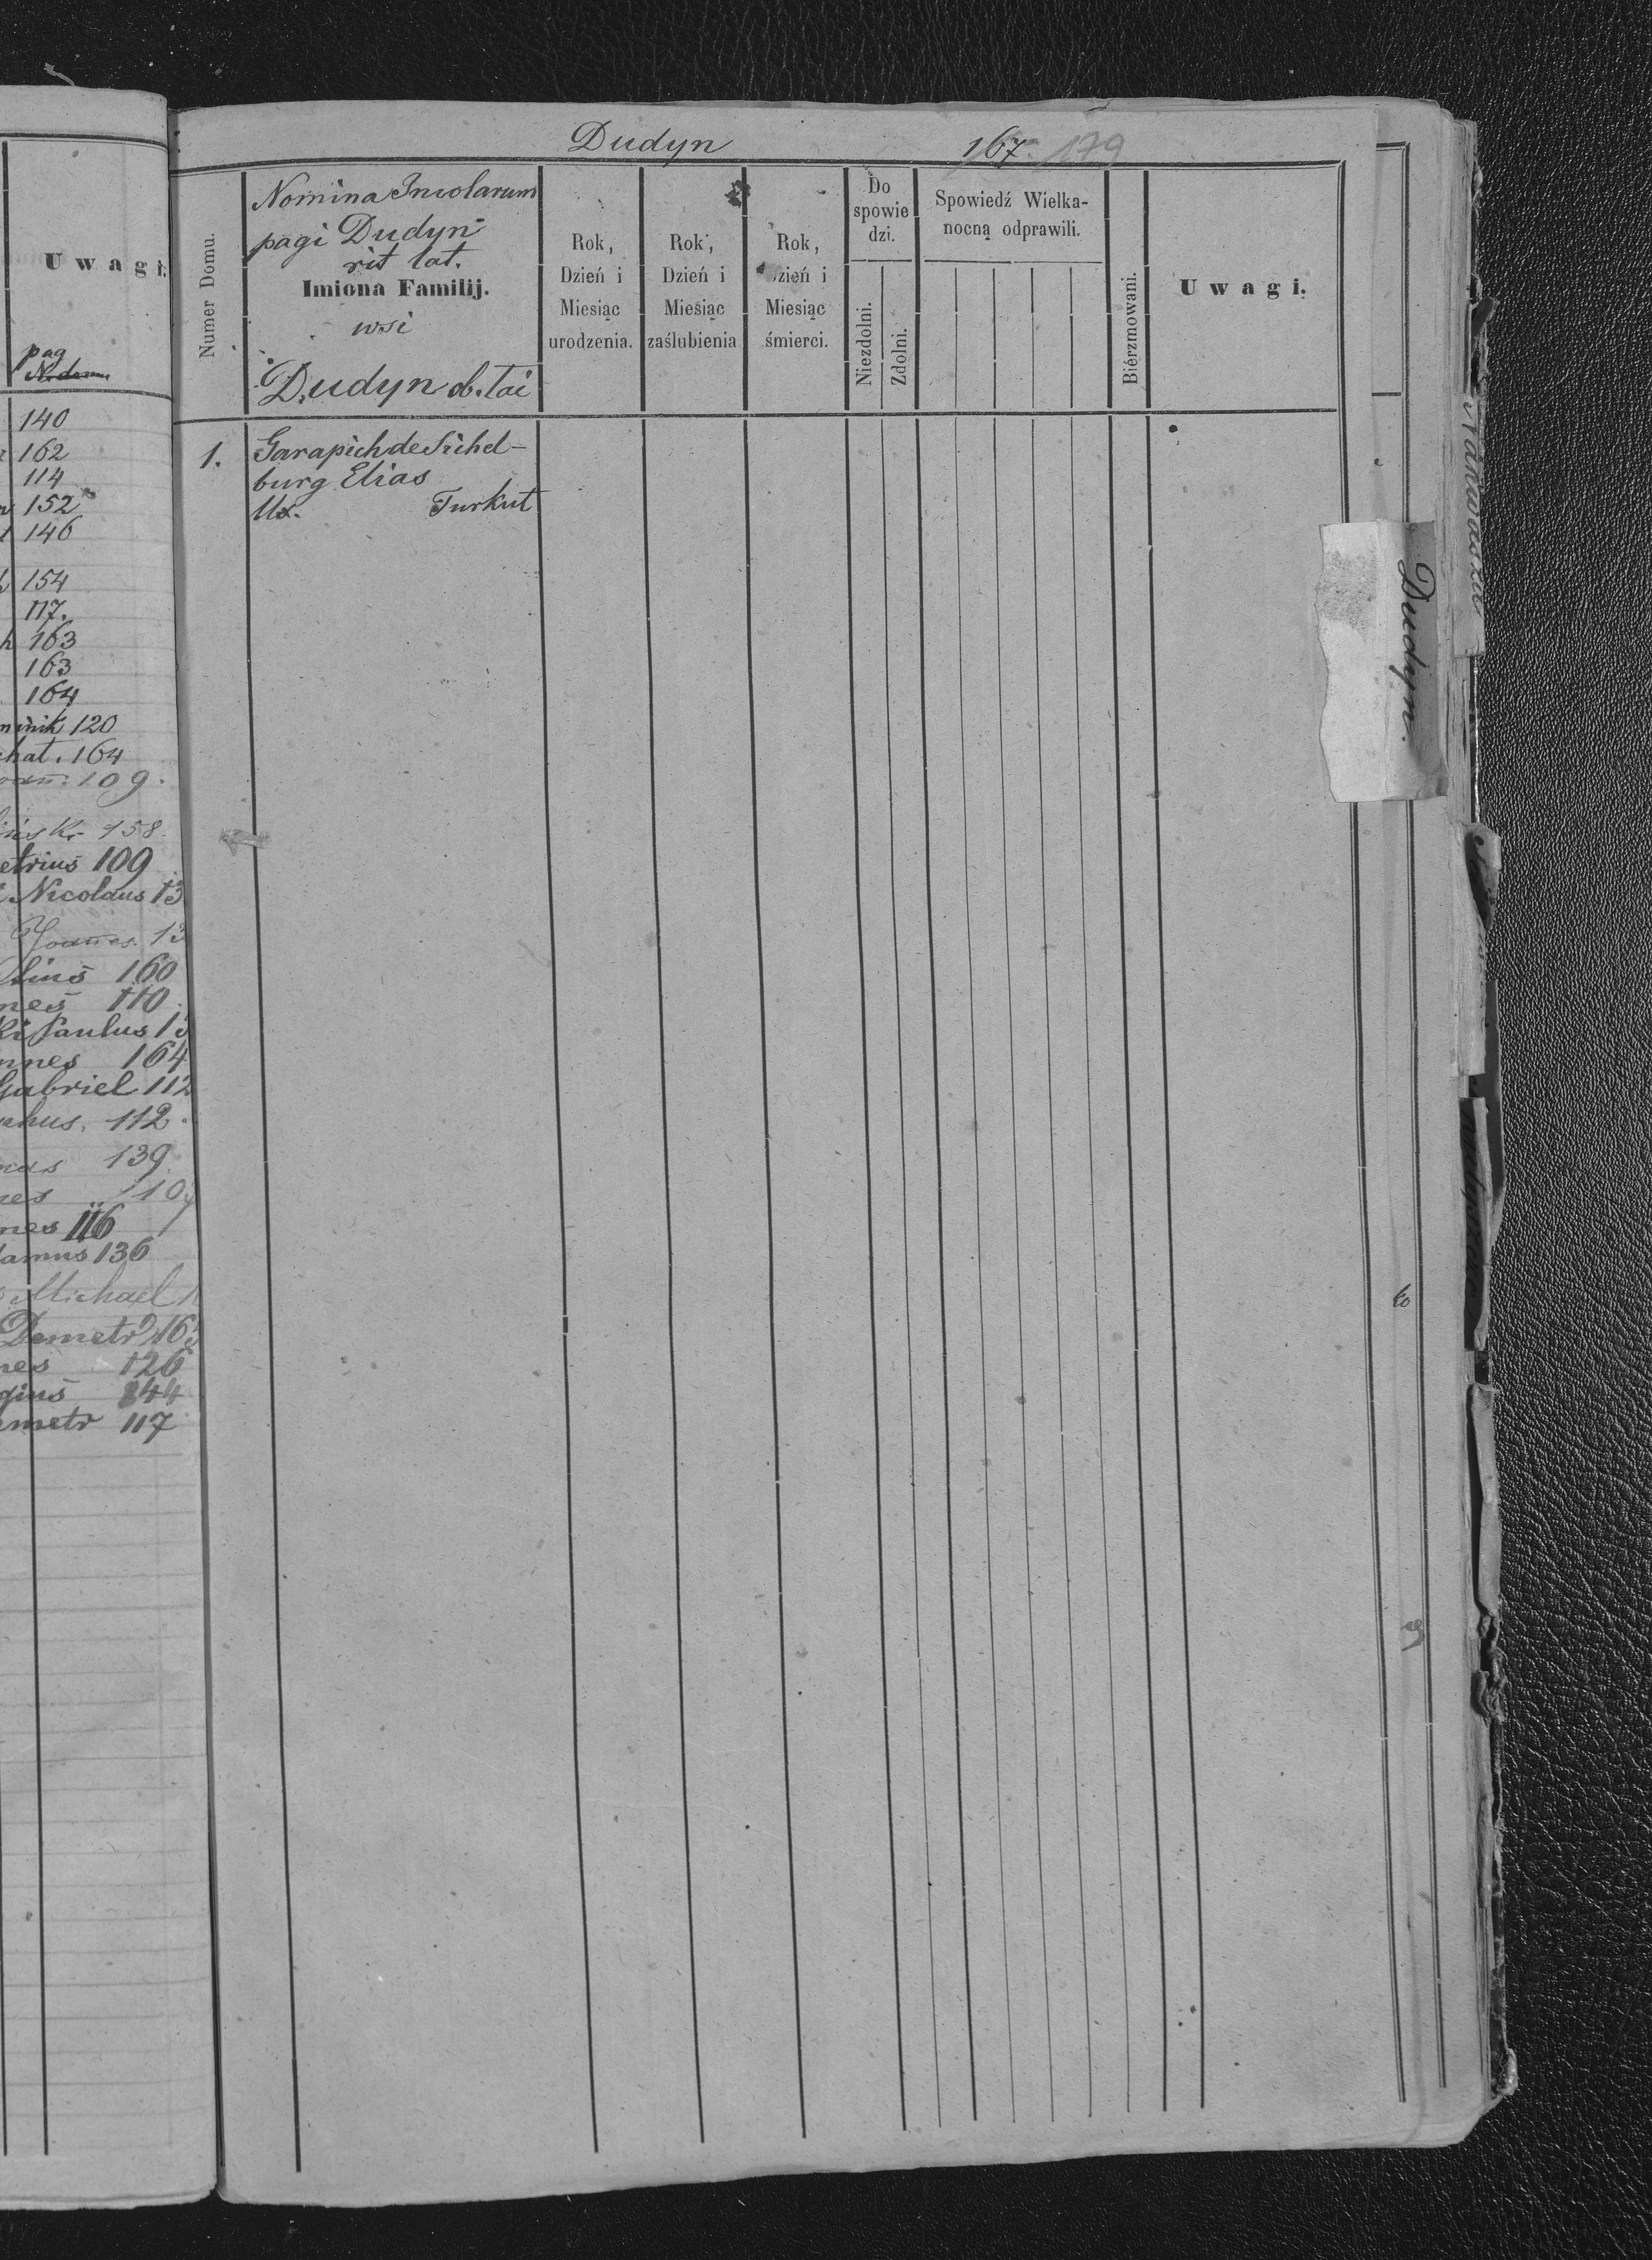 Uwagi.
pag
N. domu
140
162
114
152
146
154
117.
163
163
164
minik 120
chat. 164
109.
iński 158.
etrius 109
Nicolaus 13
Joannes. 13
160
nes 110.
ki Paulus 13
nnes 164
Gabriel 112
112.
139.
nes 110
nes 116
damus 136
Michael 1
Demetr 163
nes 126
gius 144
emetr 117
Dudyn 167. 179
Numer Domu.
Nomina Incolarum
pagi Dudyn
rit lat.
Imiona Familij.
wsi
Dudyn ob. łać
Rok,
Dzień i
Miesiąc
urodzenia.
Rok,
Dzień i
Miesiąc
zaślubienia
Rok,
Dzień i
Miesiąc
śmierci.
Do
spowie
dzi.
Niezdolni.
Zdolni.
Spowiedź Wielka-
nocną odprawili.
Bierzmowani.
Uwagi.
1. Garapich de Sichel-
burg Elias
Ux. Turkut
Dudyn.